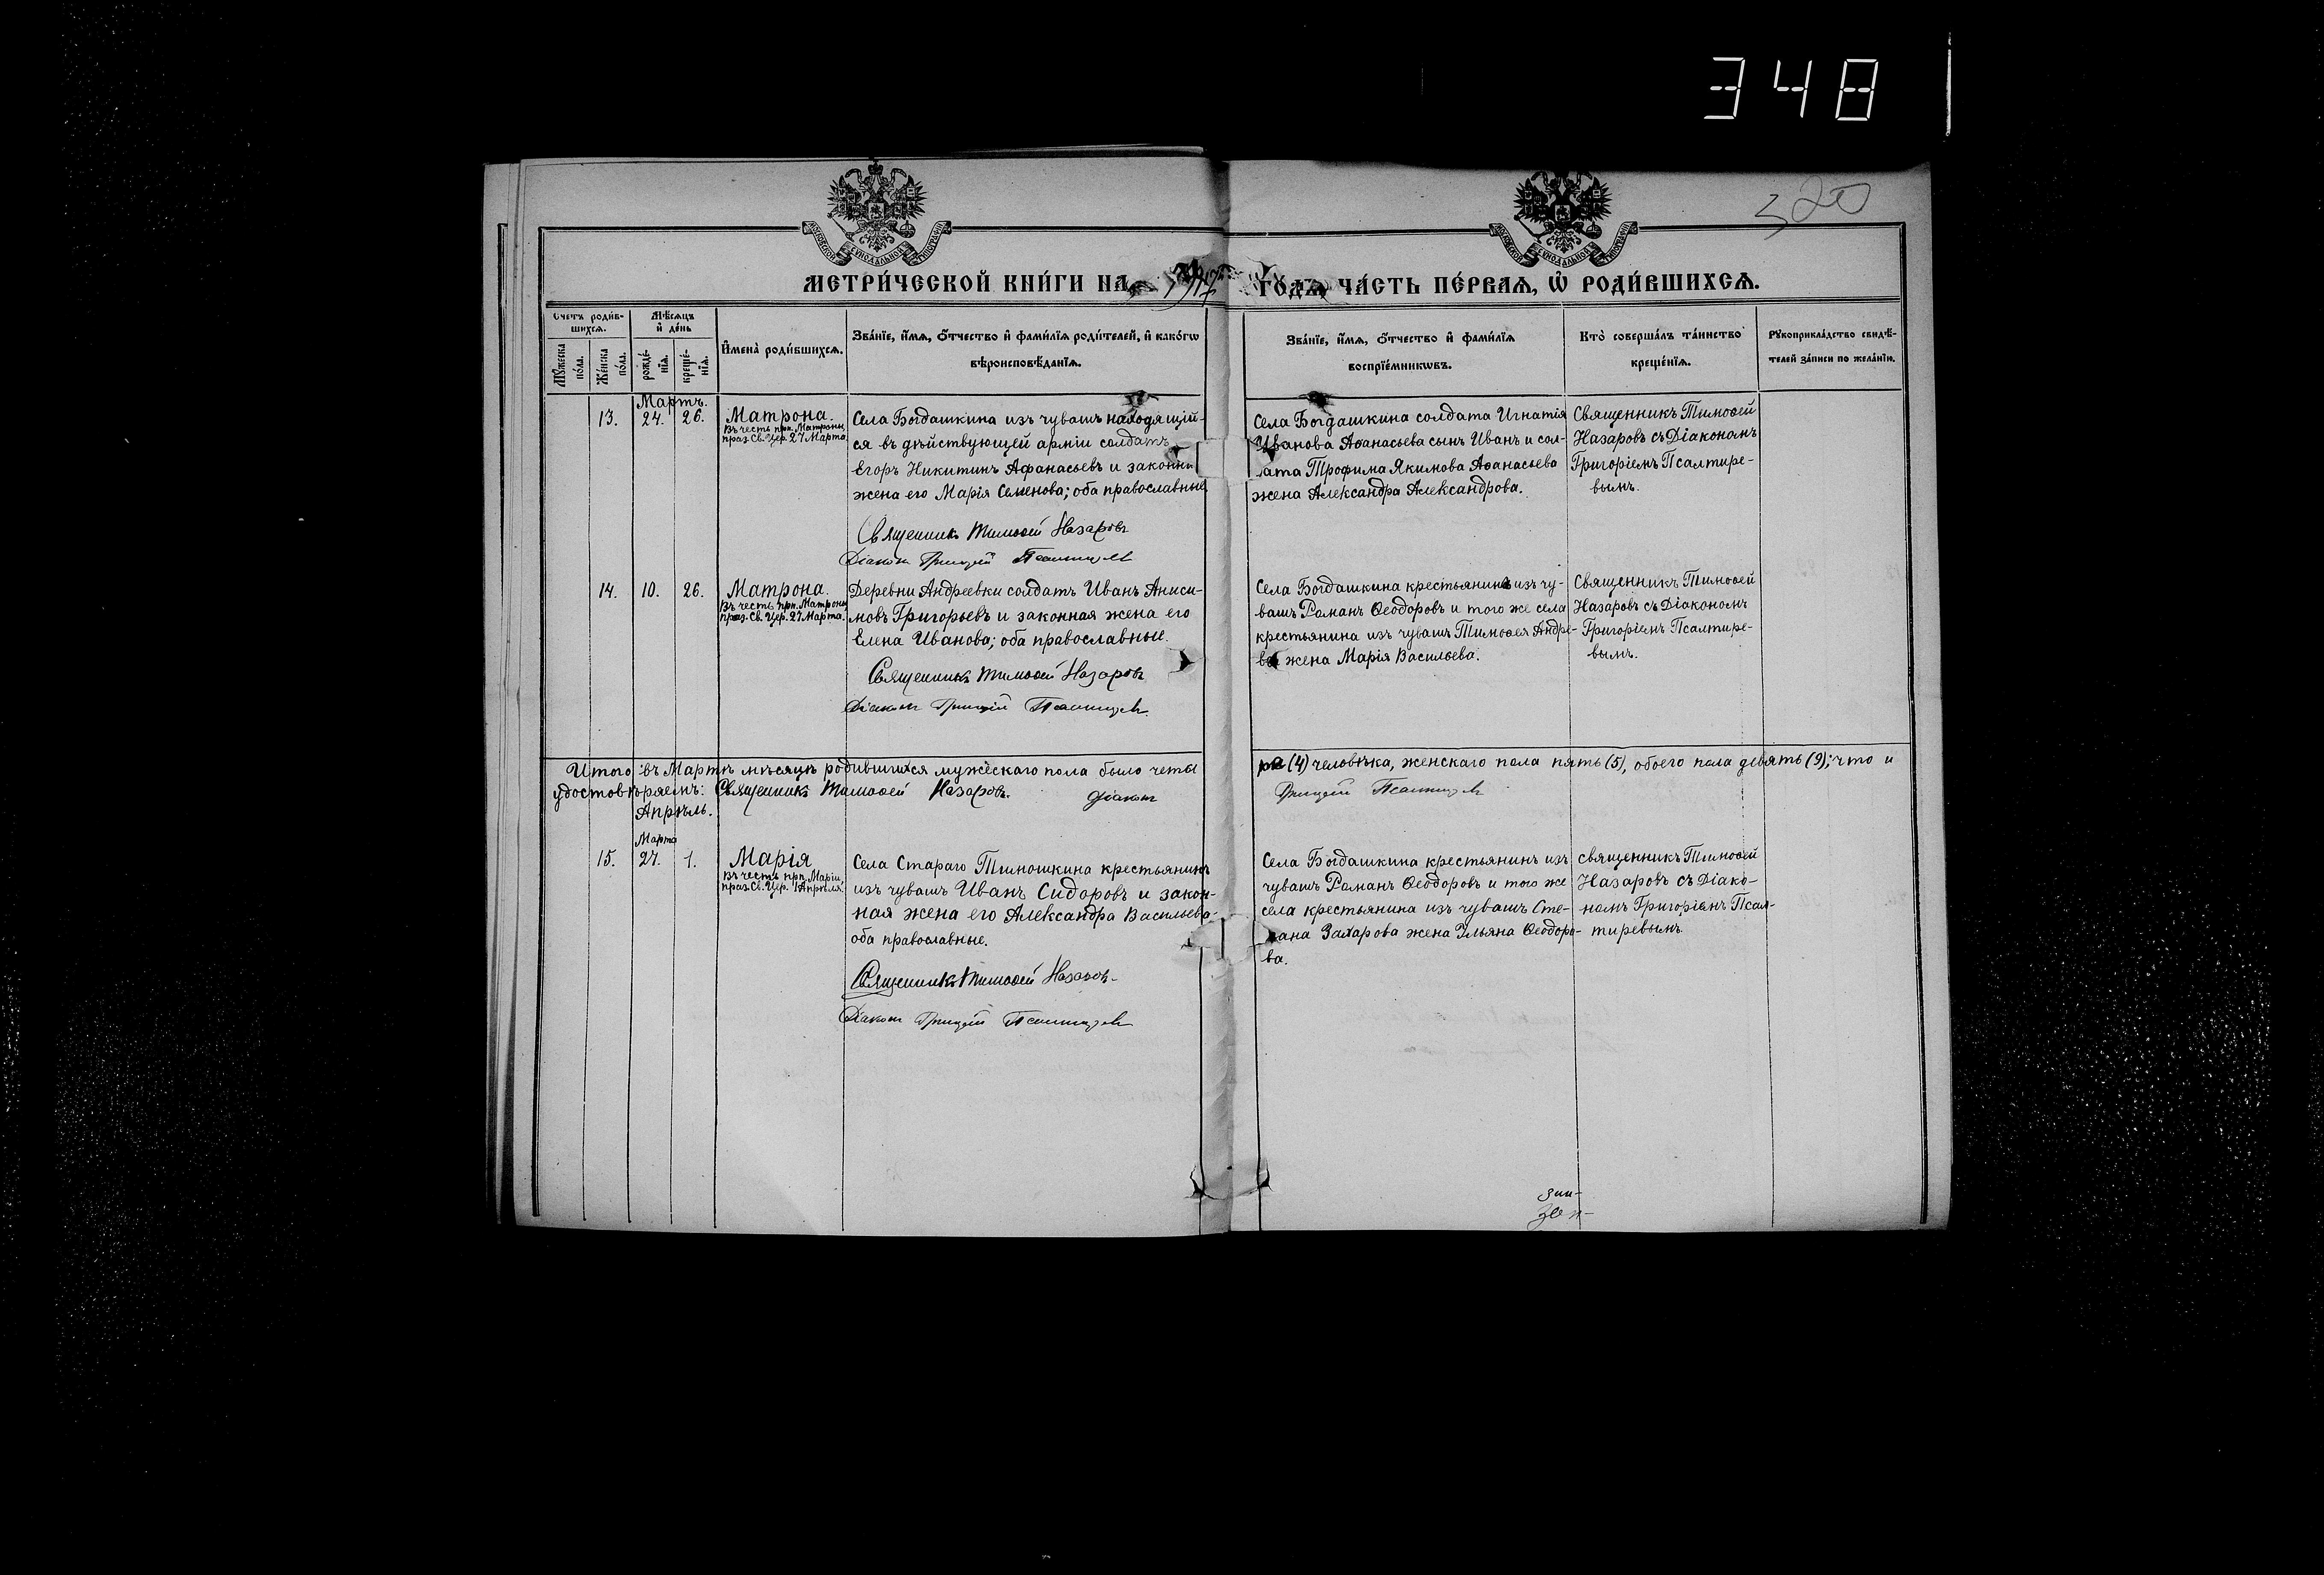 348
320
МОСКОВСКОЙ СѴНОДАЛЬНОЙ ТИПОГРАФІИ
МОСКОВСКОЙ СѴНОДАЛЬНОЙ ТИПОГРАФІИ
МЕТРИ́ЧЕСКОЙ КНИ́ГИ НА 1917 ГОДЪ ЧА́СТЬ ПЕ́РВАѦ, Ѡ҆ РОДИ́ВШИХСѦ.
Счетъ роди́в-
шихсѧ.
Мꙋ́жеска
по́ла.
Же́нска
по́ла.
Мѣ́сѧцъ
и҆ де́нь
рожде́-
нїѧ.
креще́-
нїѧ.
И҆мена̀ роди́вшихсѧ.
Зва́нїе, и҆́мѧ, ѻ҆́тчество и҆ фами́лїѧ роди́телей, и҆ како́гѡ
вѣроисповѣ́данїѧ.
Зва́нїе, и҆́мѧ, ѻ҆́тчество и҆ фами́лїѧ
воспрїе́мникѡвъ.
Кто̀ соверша́лъ та́инство
креще́нїѧ.
Рꙋкоприкла́дство свидѣ́-
телей за́писи по жела́нїю.
Мартъ.
13. 24. 26.
Матрона.
Въ честь прп. Матроны,
праз. Св. Цер. 27 Марта.
Села Богдашкина изъ чувашъ находящій-
ся въ дѣйствующей арміи солдатъ
Егоръ Никитинъ Афанасьевъ и законна
жена его Марія Семенова; оба православные.
Священникъ Тимоѳей Назаровъ
Діаконъ Григорій Псалтиревъ
Села Богдашкина солдата Игнатія
Иванова Аѳанасьева сынъ Иванъ и сол-
дата Трофима Якимова Аѳанасьева
жена Александра Александрова.
Священникъ Тимоѳей
Назаровъ съ Діакономъ
Григоріемъ Псалтире-
вымъ.
14. 10. 26.
Матрона.
Въ честь прп. Матроны,
праз. Св. Цер. 27 Марта.
Деревни Андреевки солдатъ Иванъ Аниси-
мовъ Григорьевъ и законная жена его
Елена Иванова; оба православные.
Священникъ Тимоѳей Назаровъ
Діаконъ Григорій Псалтиревъ
Села Богдашкина крестьянинъ изъ чу-
вашъ Романъ Ѳеодоровъ и того же села
крестьянина изъ чувашъ Тимоѳея Андре-
ва жена Марія Васильева.
Священникъ Тимоѳей
Назаровъ съ Діакономъ
Григоріемъ Псалтире-
вымъ.
Итого въ Мартѣ мѣсяцѣ родившихся мужескаго пола было четы
ре (4) человѣка, женскаго пола пять (5), обоего пола девять (9); что и
удостовѣряемъ: Священникъ Тимоѳей Назаровъ. Діаконъ
Григорій Псалтиревъ
Апрѣль.
Марта
15. 27. 1.
Марія
Въ честь прп. Маріи,
праз. Св. Цер. 1 Апрѣля.
Села Стараго Тимошкина крестьянинъ
изъ чувашъ Иванъ Сидоровъ и закон-
ная жена его Александра Васильева-
оба православные.
Священникъ Тимоѳей Назаровъ
Діаконъ Григорій Псалтиревъ
Села Богдашкина крестьянинъ изъ
чувашъ Романъ Ѳеодоровъ и того же
села крестьянина изъ чувашъ Сте-
пана Захарова жена Ульяна Ѳеодоро-
ва.
Священникъ Тимоѳей
Назаровъ съ Діако-
номъ Григоріемъ Псал-
тиревымъ.